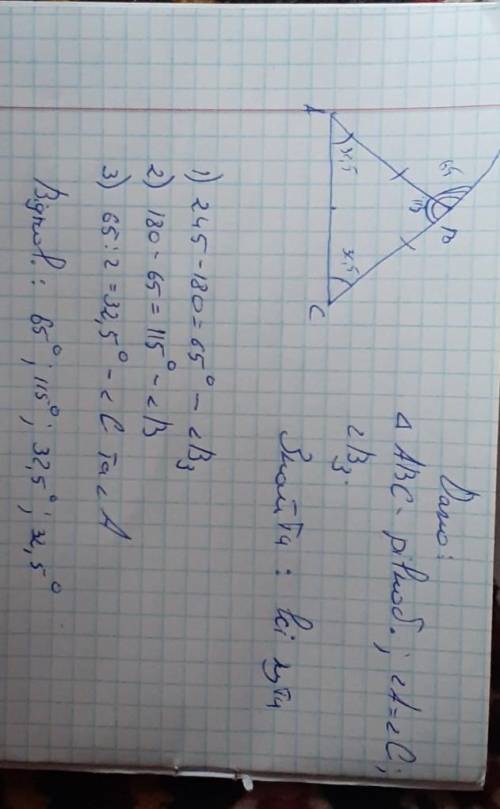 Дано:
Δ ABC - рівноб.; ∠A=∠C;
∠B₃.
Знайти: всі кути
A
B
C
65
115
32,5
32,5
1) 245-180=65° - ∠B₃
2) 180-65=115° - ∠B
3) 65:2=32,5° - ∠C та ∠A
Відпов.: 65°; 115°; 32,5°; 32,5°